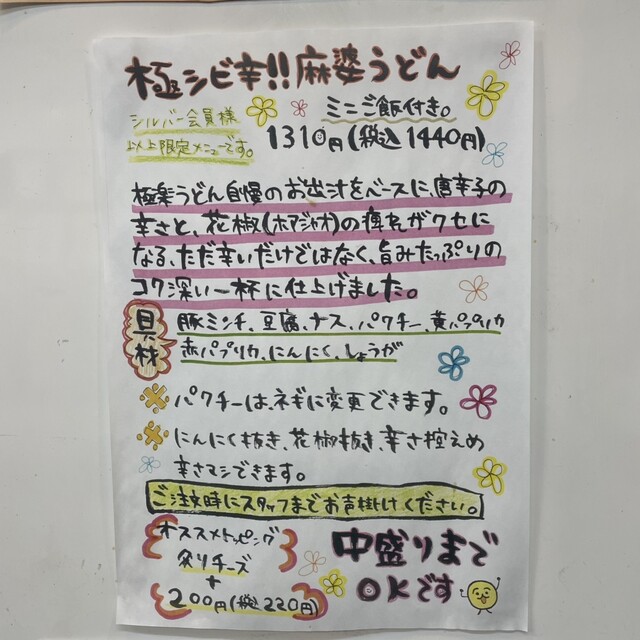 極シビ辛!!麻婆うどん
シルバー会員様
以上限定メニューです。
ミニご飯付き。
1310円(税込1440円)
極楽うどん自慢のお出汁をベースに、唐辛子の
辛さと、花椒(ホアジャオ)の痺れがクセに
なる、ただ辛いだけではなく、旨みたっぷりの
コク深い一杯に仕上げました。
具材
豚ミンチ、豆腐、ナス、パクチー、黄パプリカ
赤パプリカ、にんにく、しょうが
※ パクチーは、ネギに変更できます。
※ にんにく抜き、花椒抜き、辛さ控えめ
辛さマシできます。
ご注文時にスタッフまでお声掛けください。
オススメトッピング
炙りチーズ
+
200円(税込220円)
中盛りまで
OKです